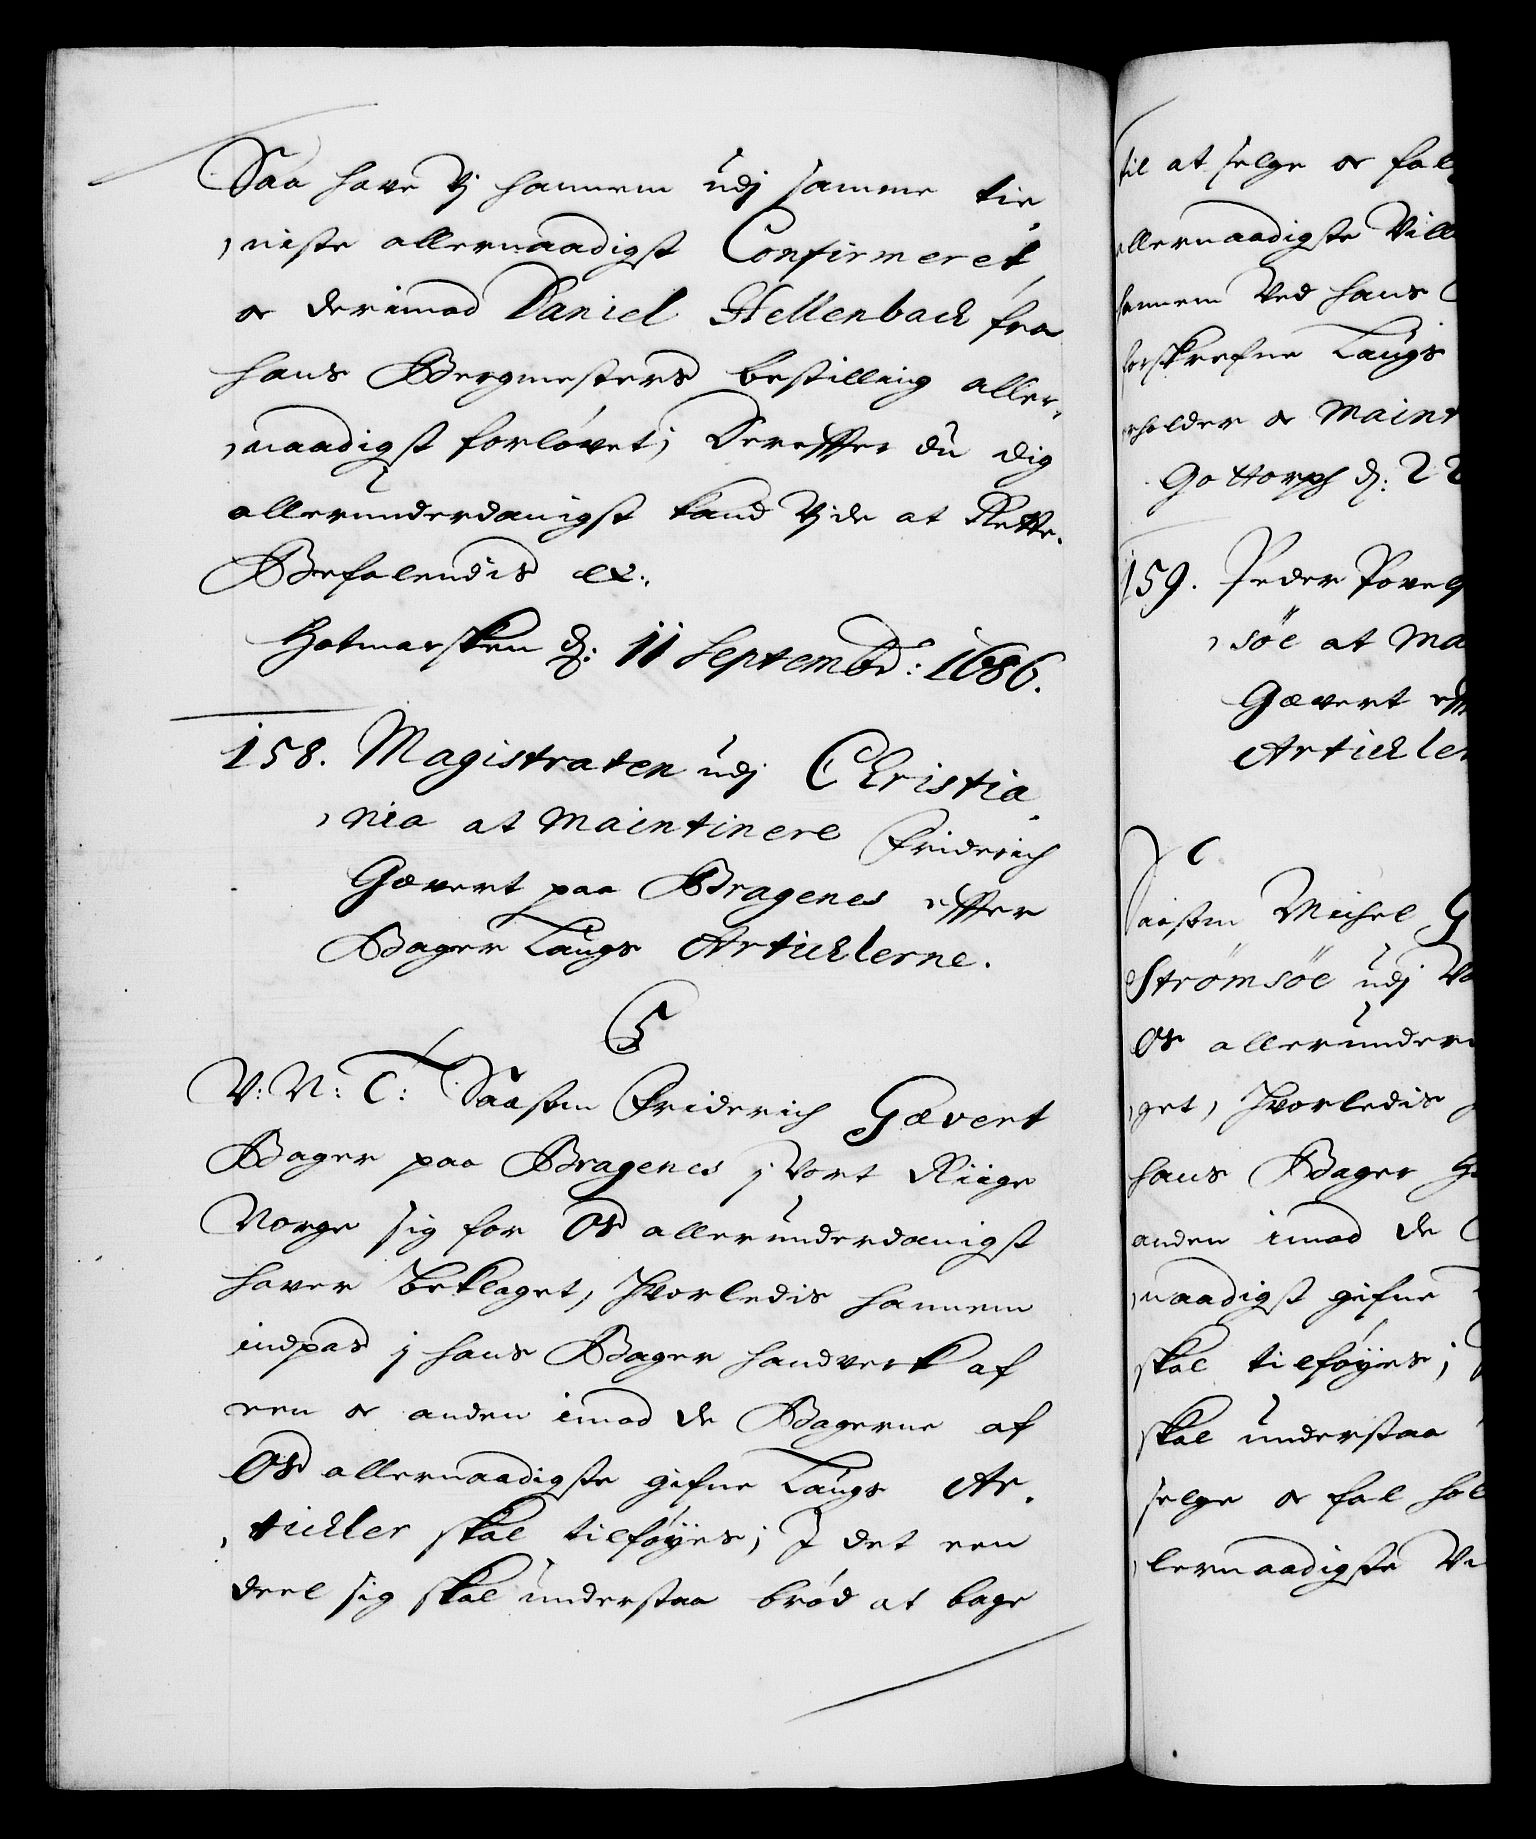 Saa have Vj hannem udj samme tie¸
¸niste allernaadigst Confirmeret,
oc derimod Daniel Hellenback fra
hans Bergmesters bestilling aller¸
¸naadigst forlóvet; Dereffter du dig
allerunderdanigst kand Vjde at Rette.
Befalendis etc:
d: 11 Septembr: 1686.
158. Magistraten udj Christia¸
¸nia at Maintinere Friderich
Gævert paa Bragenes effter
Bager Laugs Articklerne.
C 5
V: N: T: Saasom Friderich Gævert
Bager paa Bragenes j Vort Riige
Norge sig for Os allerunderdanigst
haver beklaget, hvorledis hannem
indpas j hans Bager handverk af
een oc anden imod de Bagerne af
Os allernaadigste gifne Laugs Ar¸
¸tickler skal tilføyes; I det een
deel sig skal understaa brød at bage
til at selge oc fal
allernaadigste Vill
hannem Ved hans
forskrefne Laugs
holder oc Maint
Gottorph d: 22
159. Peder Povels
¸søe at Ma
Gævert eff
Articklern
C
Saasom Michel G
Strømsøe udj Vo
Os allerunder
¸get, hvorledis
hans Bager H
anden imod de
¸naadigst gifne
skal tilføyes;
skal understaa
selge oc fal hol
¸lernaadigste Vi